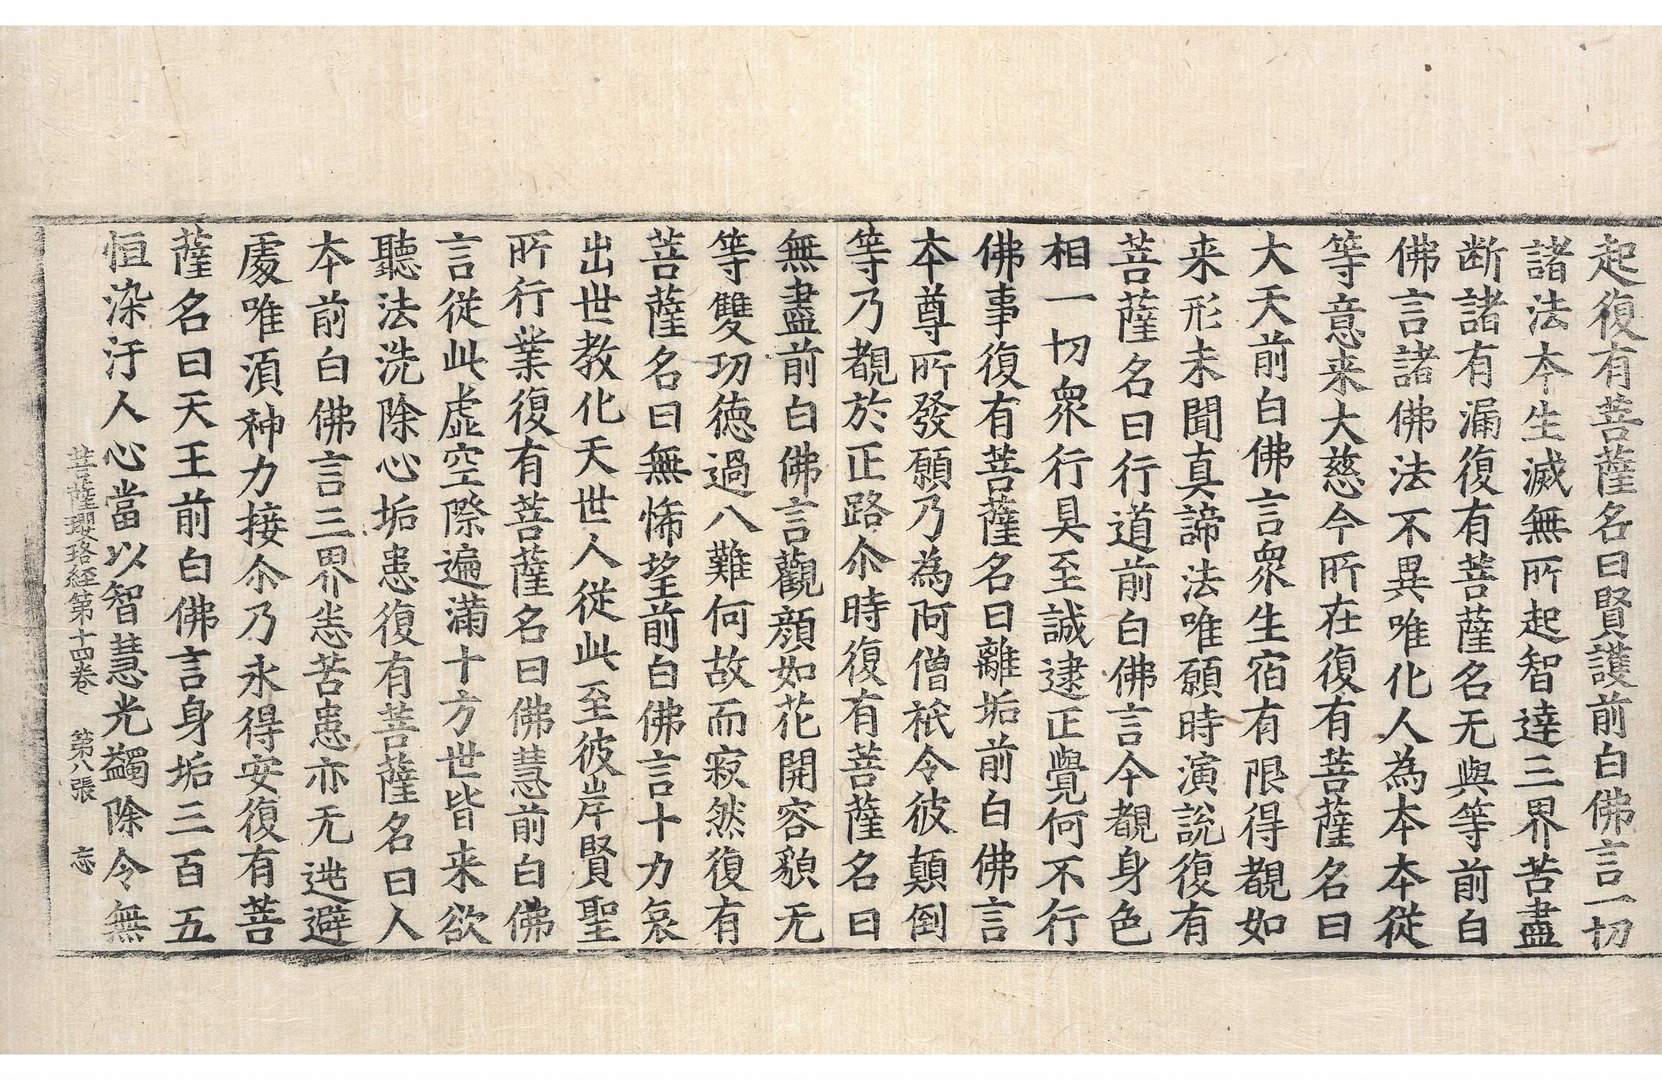 起復有菩薩名曰賢護前白佛言一切
諸法夲生滅無所起智達三界苦盡
断諸有漏復有菩薩名无與等前白
佛言諸佛法不異唯化人為夲夲從
等意来大慈今所在復有菩薩名曰
大天前白佛言衆生宿有限得覩如
来形未聞真諦法唯願時演說復有
菩薩名曰行道前白佛言今覩身色
相一切衆行具至誠逮正覺何不行
佛事復有菩薩名曰離垢前白佛言
夲尊所發願乃為阿僧祇令彼顛倒
等乃覩於正路尒時復有菩薩名曰
無盡前白佛言觀顔如花開容貌无
等雙功德過八難何故而寂然復有
菩薩名曰無悕望前白佛言十力哀
出世教化天世人從此至彼岸賢聖
所行業復有菩薩名曰佛慧前白佛
言從此虚空際遍滿十方世皆来欲
聽法洗除心垢患復有菩薩名曰人
夲前白佛言三界恙苦患亦无逃避
處唯湏神力接尒乃永得安復有菩
薩名曰天王前白佛言身垢三百五
恒染汙人心當以智慧光蠲除令無
菩薩瓔珞經第十四卷 第八張 忘